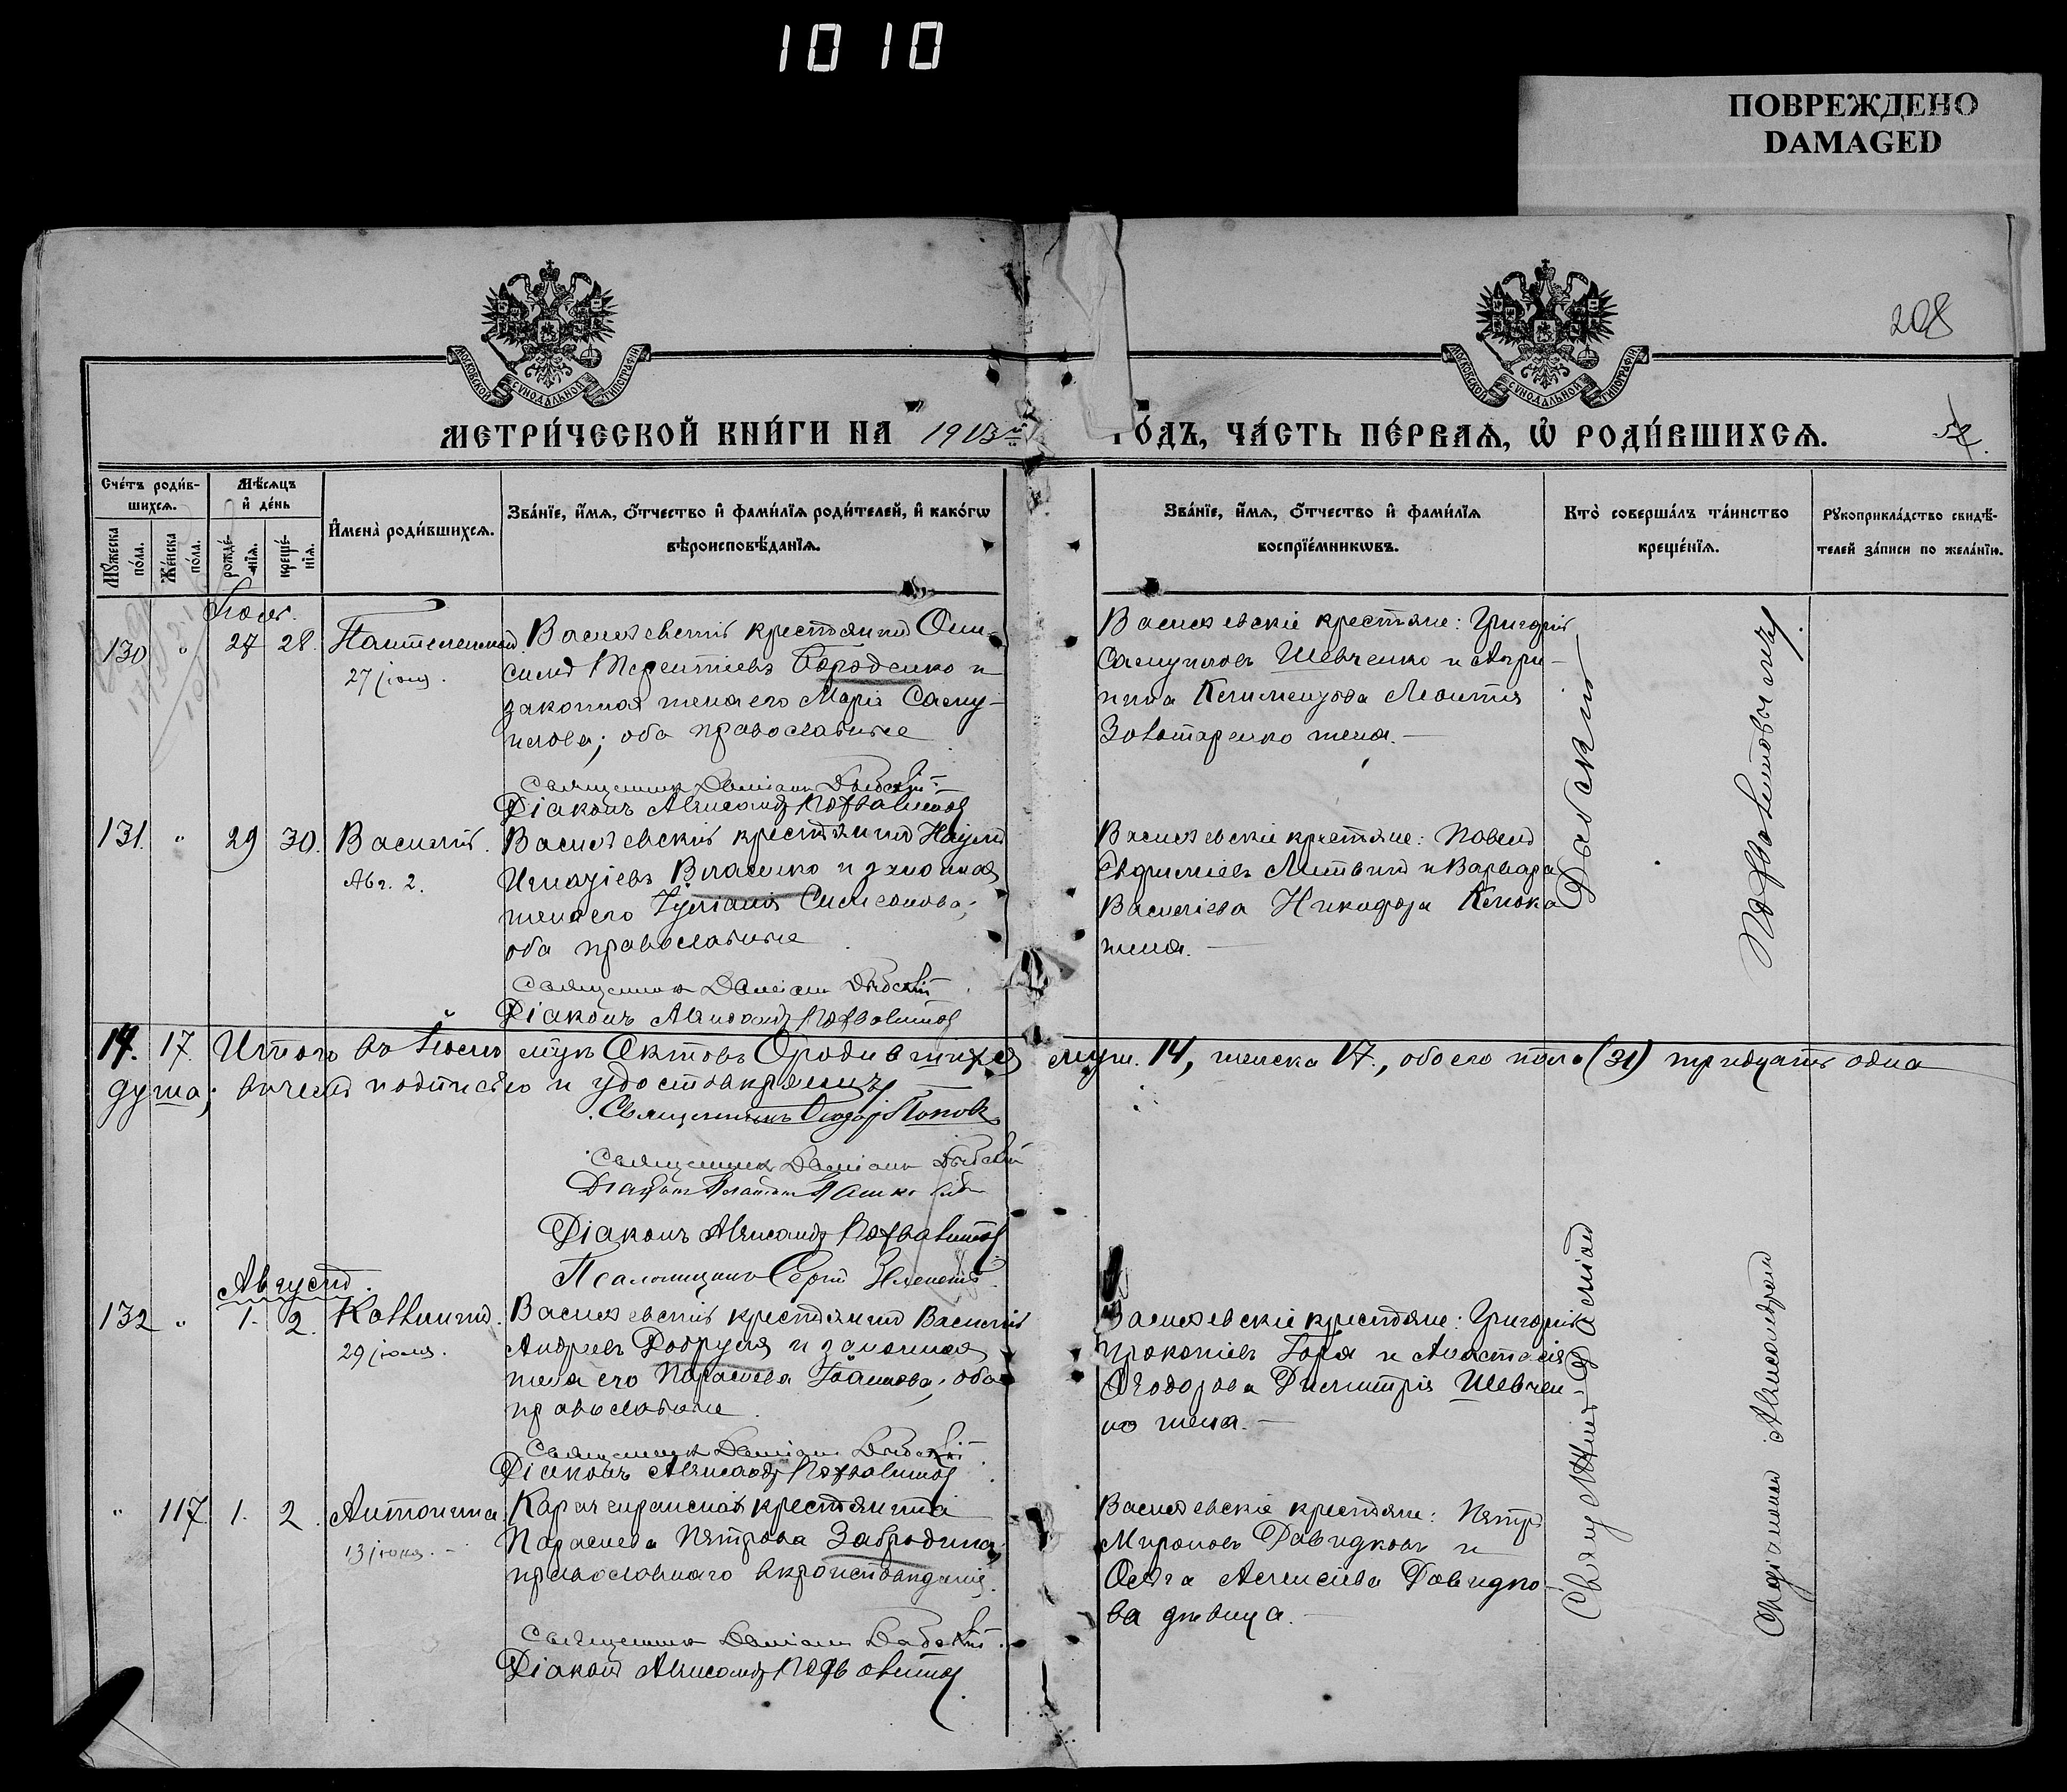 10 10
ПОВРЕЖДЕНО
DAMAGED
208
МОСКОВСКОЙ СѴНОДАЛЬНОЙ ТИПОГРАФІИ
МОСКОВСКОЙ СѴНОДАЛЬНОЙ ТИПОГРАФІИ
МЕТРИ́ЧЕСКОЙ КНИ́ГИ НА 1913й
ГО́ДЪ, ЧА́СТЬ ПЕ́РВАѦ, Ѡ҆ РОДИ́ВШИХСѦ.
Сче́тъ роди́в-
шихсѧ.
Мѣ́сѧцъ
и҆ де́нь
Мꙋ́жеска по́ла.
Же́нска по́ла.
рожде́-нїѧ.
креще́-нїѧ.
И҆мена̀ роди́вшихсѧ.
Зва́нїе, и҆́мѧ, ѻ҆́тчество и҆ фами́лїѧ роди́телей, и҆ како́гѡ
вѣроисповѣ́данїѧ.
Зва́нїе, и҆́мѧ, ѻ҆́тчество и҆ фами́лїѧ
воспрїе́мникѡвъ.
Кто̀ соверша́лъ та́инство
креще́нїѧ.
Рꙋкоприкла́дство свидѣ́-
телей за́писи по жела́нїю.
Іюль.
130 " 27 28. Пантелеимонъ.
27 іюля.
Васильевскій крестьянинъ Они-
симъ Терентіевъ Бороденко и
законная жена его Марія Саму-
илова; оба православные
Священникъ Даміанъ
Діаконъ Александръ Похвалитовъ
Васильевскіе крестьяне: Григорій
Самуиловъ Шевченко и Агри-
пина Климентова Леонтія
Золотаренко жена.
131. " 29 30. Василій.
Авг. 2.
Васильевскій крестьянинъ Наумъ
Игнатіевъ Власенко и законная
жена его Іуліанія Симеонова;
оба православные
Священникъ Даміанъ
Діаконъ Александръ Похвалитовъ
Васильевскіе крестьяне: Павелъ
Евфиміевъ Литвинъ и Варвара
Васильева Никифора Клюка
жена.
14. 17. Итого въ Іюлѣ мѣсц. Актовъ О родившихся муж. 14, женска 17., обоего пола (31) тридцать одна
душа; въ чемъ подписью и удостовѣряемъ
Священникъ Ѳеодоръ Поповъ
Священникъ Даміанъ
Діаконъ Александръ Похвалитовъ
Псаломщикъ Сергій
Августъ.
132 " 1. 2. Каллиникъ.
29 іюля.
Васильевскій крестьянинъ Василій
Андреевъ Добруся и законная
жена его Параскева Іоаннова, оба
православные
Священникъ Даміанъ
Діаконъ Александръ Похвалитовъ
Васильевскіе крестьяне: Григорій
Прокопіевъ Гора и Анастасія
Ѳеодорова Димитрія Шевчен-
ко жена.
" 117 1. 2. Антонина
13 іюня.
крестьянка
Параскева Петрова Забродина,
православнаго вѣроисповѣданія.
Священникъ Даміанъ
Діаконъ Александръ Похвалитовъ
Васильевскіе крестьяне: Петръ
Мироновъ Давидковъ и
Ольга Алексіева Давидко-
ва дѣвица.
Священникъ Даміанъ
Съ діакономъ Александромъ
Похвалитовымъ.